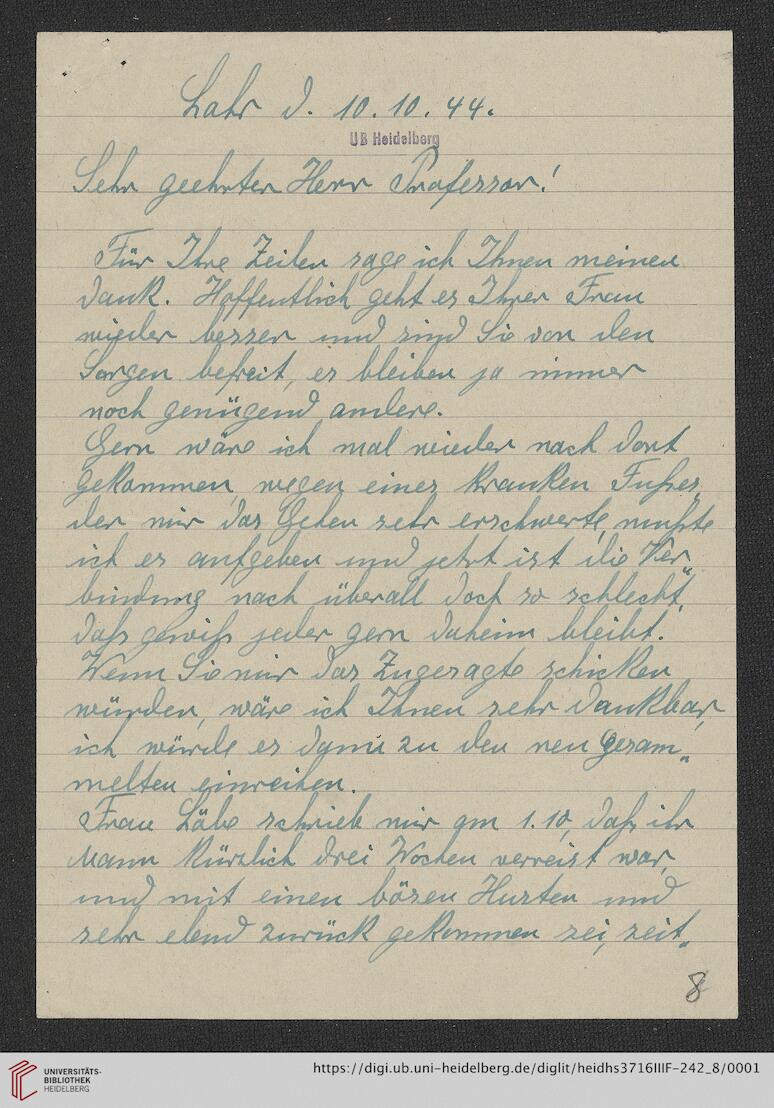 Lahr d. 10.10.44.
UB Heidelberg
Sehr geehrter Herr Professor!
Für Ihre Zeilen sage ich Ihnen meinen
Dank. Hoffentlich geht es Ihrer Frau
wieder besser und sind Sie von den
Sorgen befreit, es bleiben ja immer
noch genügend andere.
Gern wäre ich mal wieder nach dort
gekommen, wegen eines kranken Fußes,
der mir das Gehen sehr erschwerte, mußte
ich es aufgeben und jetzt ist die Ver„
bindung nach überall doch so schlecht,
daß gewiß jeder gern daheim bleibt.
Wenn Sie mir das Zugesagte schicken
würden, wäre ich Ihnen sehr dankbar,
ich würde es dann zu den neu gesam„
melten einreihen.
Frau Löbe schrieb mir am 1.10, daß ihr
Mann kürzlich drei Wochen verreist war,
und mit einen bösen Husten und
sehr elend zurück gekommen sei, seit„
8
UNIVERSITÄTS-
BIBLIOTHEK
HEIDELBERG
https://digi.ub.uni-heidelberg.de/diglit/heidhs3716IIIF-242_8/0001